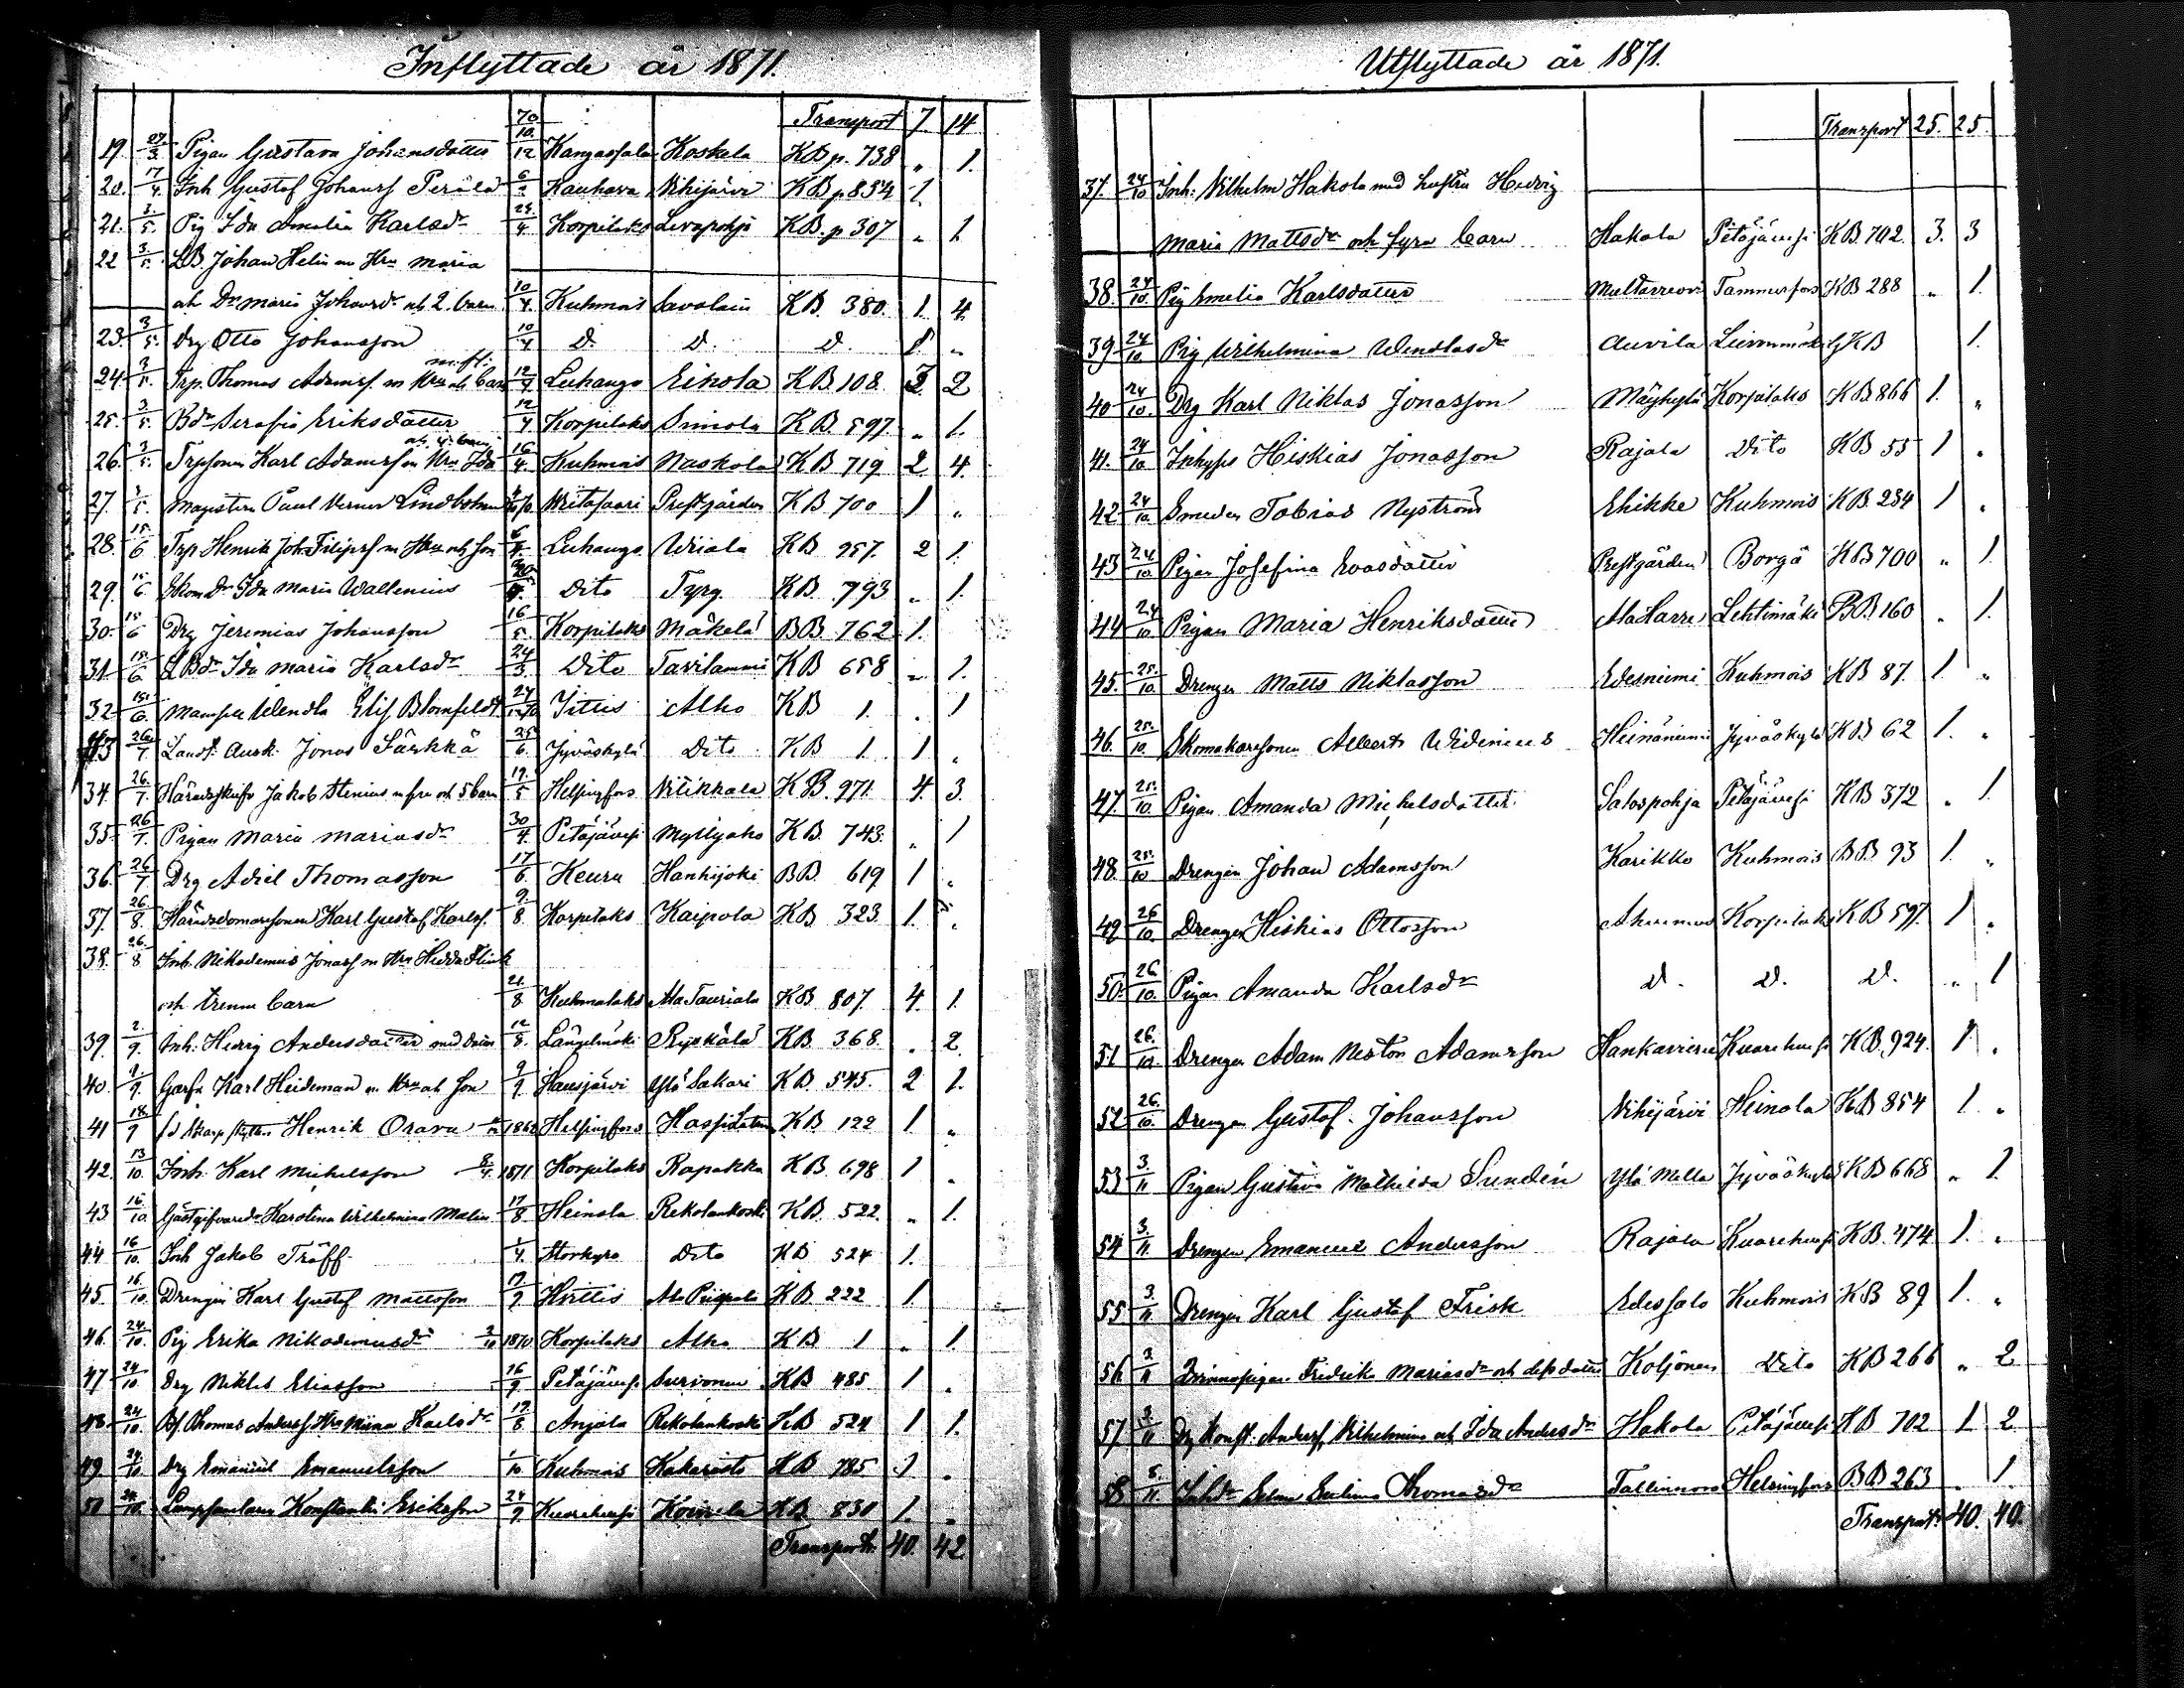 Inflyttade år 1871.
70/10. Transport 7. 14
19 27/3. Pigan Gustava Johansdotter 12 Kangasala Koskela KB p. 738 „ 1.
20. 17/4. Inh Gustaf Johansf Perälä 6/ Kauhava Vihijärvi KB p 854 1.
21. 3/5. Pig Ida Amalia Karlsdr 25/4. Korpilaks Levapohja KB. p 307 „ 1.
22 3/5. LB. Johan Helin m Hru Maria
och Dr Maria Johansdr och 2. barn 10/4. Kuhmois Savolain KB. 380. 1. 4.
23. 3/5. Drg Otto Johansson 10/4 D. D. D. 1. „
m. fl:
24. 3/5. Trp. Thomas Adamsf m Hru och barn 12/4 Luhango Eikola KB. 108. 2. 2
25. 3/5. Bdr Serafia Eriksdotter 12/4 Korpilaks Simola KB. 597. „ 1.
och 4. barn
26. 3/5. Trpsonen Karl Adamsf m Hru Ida 16/4. Kuhmois Naskola KB 719 2 4.
27. 5. Magistern Paul Verner Lindbohm Viitasaari Prestgården KB 700 1 „
28. 15/6 Trp Henrik Joh. Filipsf m Hru och son 6/ Luhango Wiiala KB 957. 2 1.
29. 15/6. Skom Dr Ida Maria Wallenius Dito Tyry KB 793 „ 1.
30. 15/6 Drg Jeremias Johansson 16/5. Korpilaks Mäkelä BB 762 1.
31 15/6. LBdr Ida Maria Karlsdr 24/3. Dito Tavilammi KB 658 „ 1.
32 15/6. Mamsell Wendla Elis Blomfeldt 24/ Iittis Alho KB 1. . 1
33 26/7. Landt. Ausk. Jonas Särkkä 25/6. Jyväskylä Dito KB 1. 1 „
34. 26/7. Häradsskrifv Jakob Stenius m fru och 5 barn 19/5 Helsingfors Nitikkala KB. 971. 4. 3.
35. 26/7. Pigan Maria Mariasdr 30/4. Petäjävesi Myllyaho KB. 743. „ 1
36. 26/7 Drg Adiel Thomasson 17/6. Keuru Hankijoki BB. 619 1 „
37. 26/8. Häradsdomaresonen Karl Gustaf Karlsf. 9/8. Korpilaks Kaipola KB 323. 1. „
38. 26/8 Inh. Nikodemus Jonasf m Hru Hedda Flink
och trenne barn 21/8 Kuhmalaks Ala Tauriala KB 807. 4. 1.
39. 2/9. Inh. Hedvig Andersdotter med 12/8. Längelmäki Ryskälä KB. 368. . 2.
40. 9. Garfv Karl Heideman m Hru och son 9/9 Hausjärvi Ylä Sakari KB. 545. 2 1.
41 18/9 fd Skarpskytten Henrik Orava 1862 Helsingfors KB. 122 1 „
42. 13/10. Inh. Karl Michelsson 8/ 1871 Korpilaks Rapakka KB. 698 1 „
43 16/10. Gästgifvaredr Karolina Wilhelmina Malin 17/8. Heinola Rekolankoski KB. 522. „ 1.
44 16/10. Inh Jakob Träff. 1/4. Storkyro Dito KB 524 1.
45. 16/10. Drengen Karl Gustaf Mattsson 19/9 Hiittis Ala Piispala KB 222 1.
46. 24/10. Pig Erika Nikodemusdr 2/10 1870 Korpilaks Alho KB 1 „ 1.
47 24/10 Drg Niklas Eliasson 16/9. Petäjävesi Survonen KB 485 1 „
48. 24/10. Bf. Thomas Andersf Hru Miina Karlsdr 17/8 Anjala Rekolankoski KB 524 1 1.
49. 24/10. Drg Emanuel Emanuelsson 1/10 Kuhmois Kakaristo KB 785 1 „
50. 24/10. Konstantin Eriksson 24/9 Kuorehvesi KB 830 1. „
Transport. 40. 42
Utflyttade år 1871.
Transport 25. 25.
37. 24/10 Inh: Vilhelm Hakola med hustru Hedvig
Maria Mattsdr och fyra barn Hakola Petäjävesi KB. 702. 3. 3
38. 24/10. Pig Emelia Karlsdotter Tammerfors KB 288 „ 1.
39 24/10 Pig Wilhelmina Wendlasdr Auvila KB 1.
40 24/10. Drg Karl Niklas Jonasson Mäykylä Korpilaks KB 866 1. „
41. 24/10. Inhyses Hiskias Jonasson Rajala Dito KB 55 1 „
42. 24/10. Smeden Tobias Nyström Ehikke Kuhmois KB. 234 1 „
43 24/10. Pigan Josefina Evasdotter Prestgården Borgå KB 700 „ 1.
44 24/10 Pigan Maria Henriksdotter Ala Harri Lehtimäki BB. 160 „ 1.
45. 25/10. Drengen Matts Niklasson Edesniemi Kuhmois KB 87. 1. „
46. 25/10. Skomakaresonen Albert Widenius Heinäniemi Jyväskylä KB 62 1. „
47. 25/10. Pigan Amanda Michelsdotter Salospohja Petäjävesi KB 372 „ 1.
48. 25/10 Drengen Johan Adamsson Karikko Kuhmois BB 93 1. „
49 26/10. Drengen Hiskias Ottosson Korpilaks KB 597. 1 „
50. 26/10. Pigan Amanda Karlsdr D. D. D. „ 1
51 26/10. Drengen Adam Nestor Adamsson Hankavieru Kuorehvesi KB. 924. 1 „
52 26/10. Drengen Gustaf Johansson Vihijärvi Heinola KB 854 1. „
53 3/11 Pigan Gustava Mathilda Sundén Ylä Mella Jyväskylä KB 668 „ 1.
54 3/11. Drengen Emanuel Andersson Rajala Kuorehvesi KB. 474 1. „
55 3/11. Drengen Karl Gustaf Frisk Edessalo Kuhmois KB 89 1. „
56. 3/11 Fredrika Mariasdr och dess dotter Koljonen Dito KB 266 „ 2
57 3/11 Drg Konst. Andersf, Vilhelmina och Ida Andersdr Hakola Petäjävesi KB 702 1 2
58 5/11. Thomasdr Helsingfors BB 263 . 1
Transport. 40. 40.